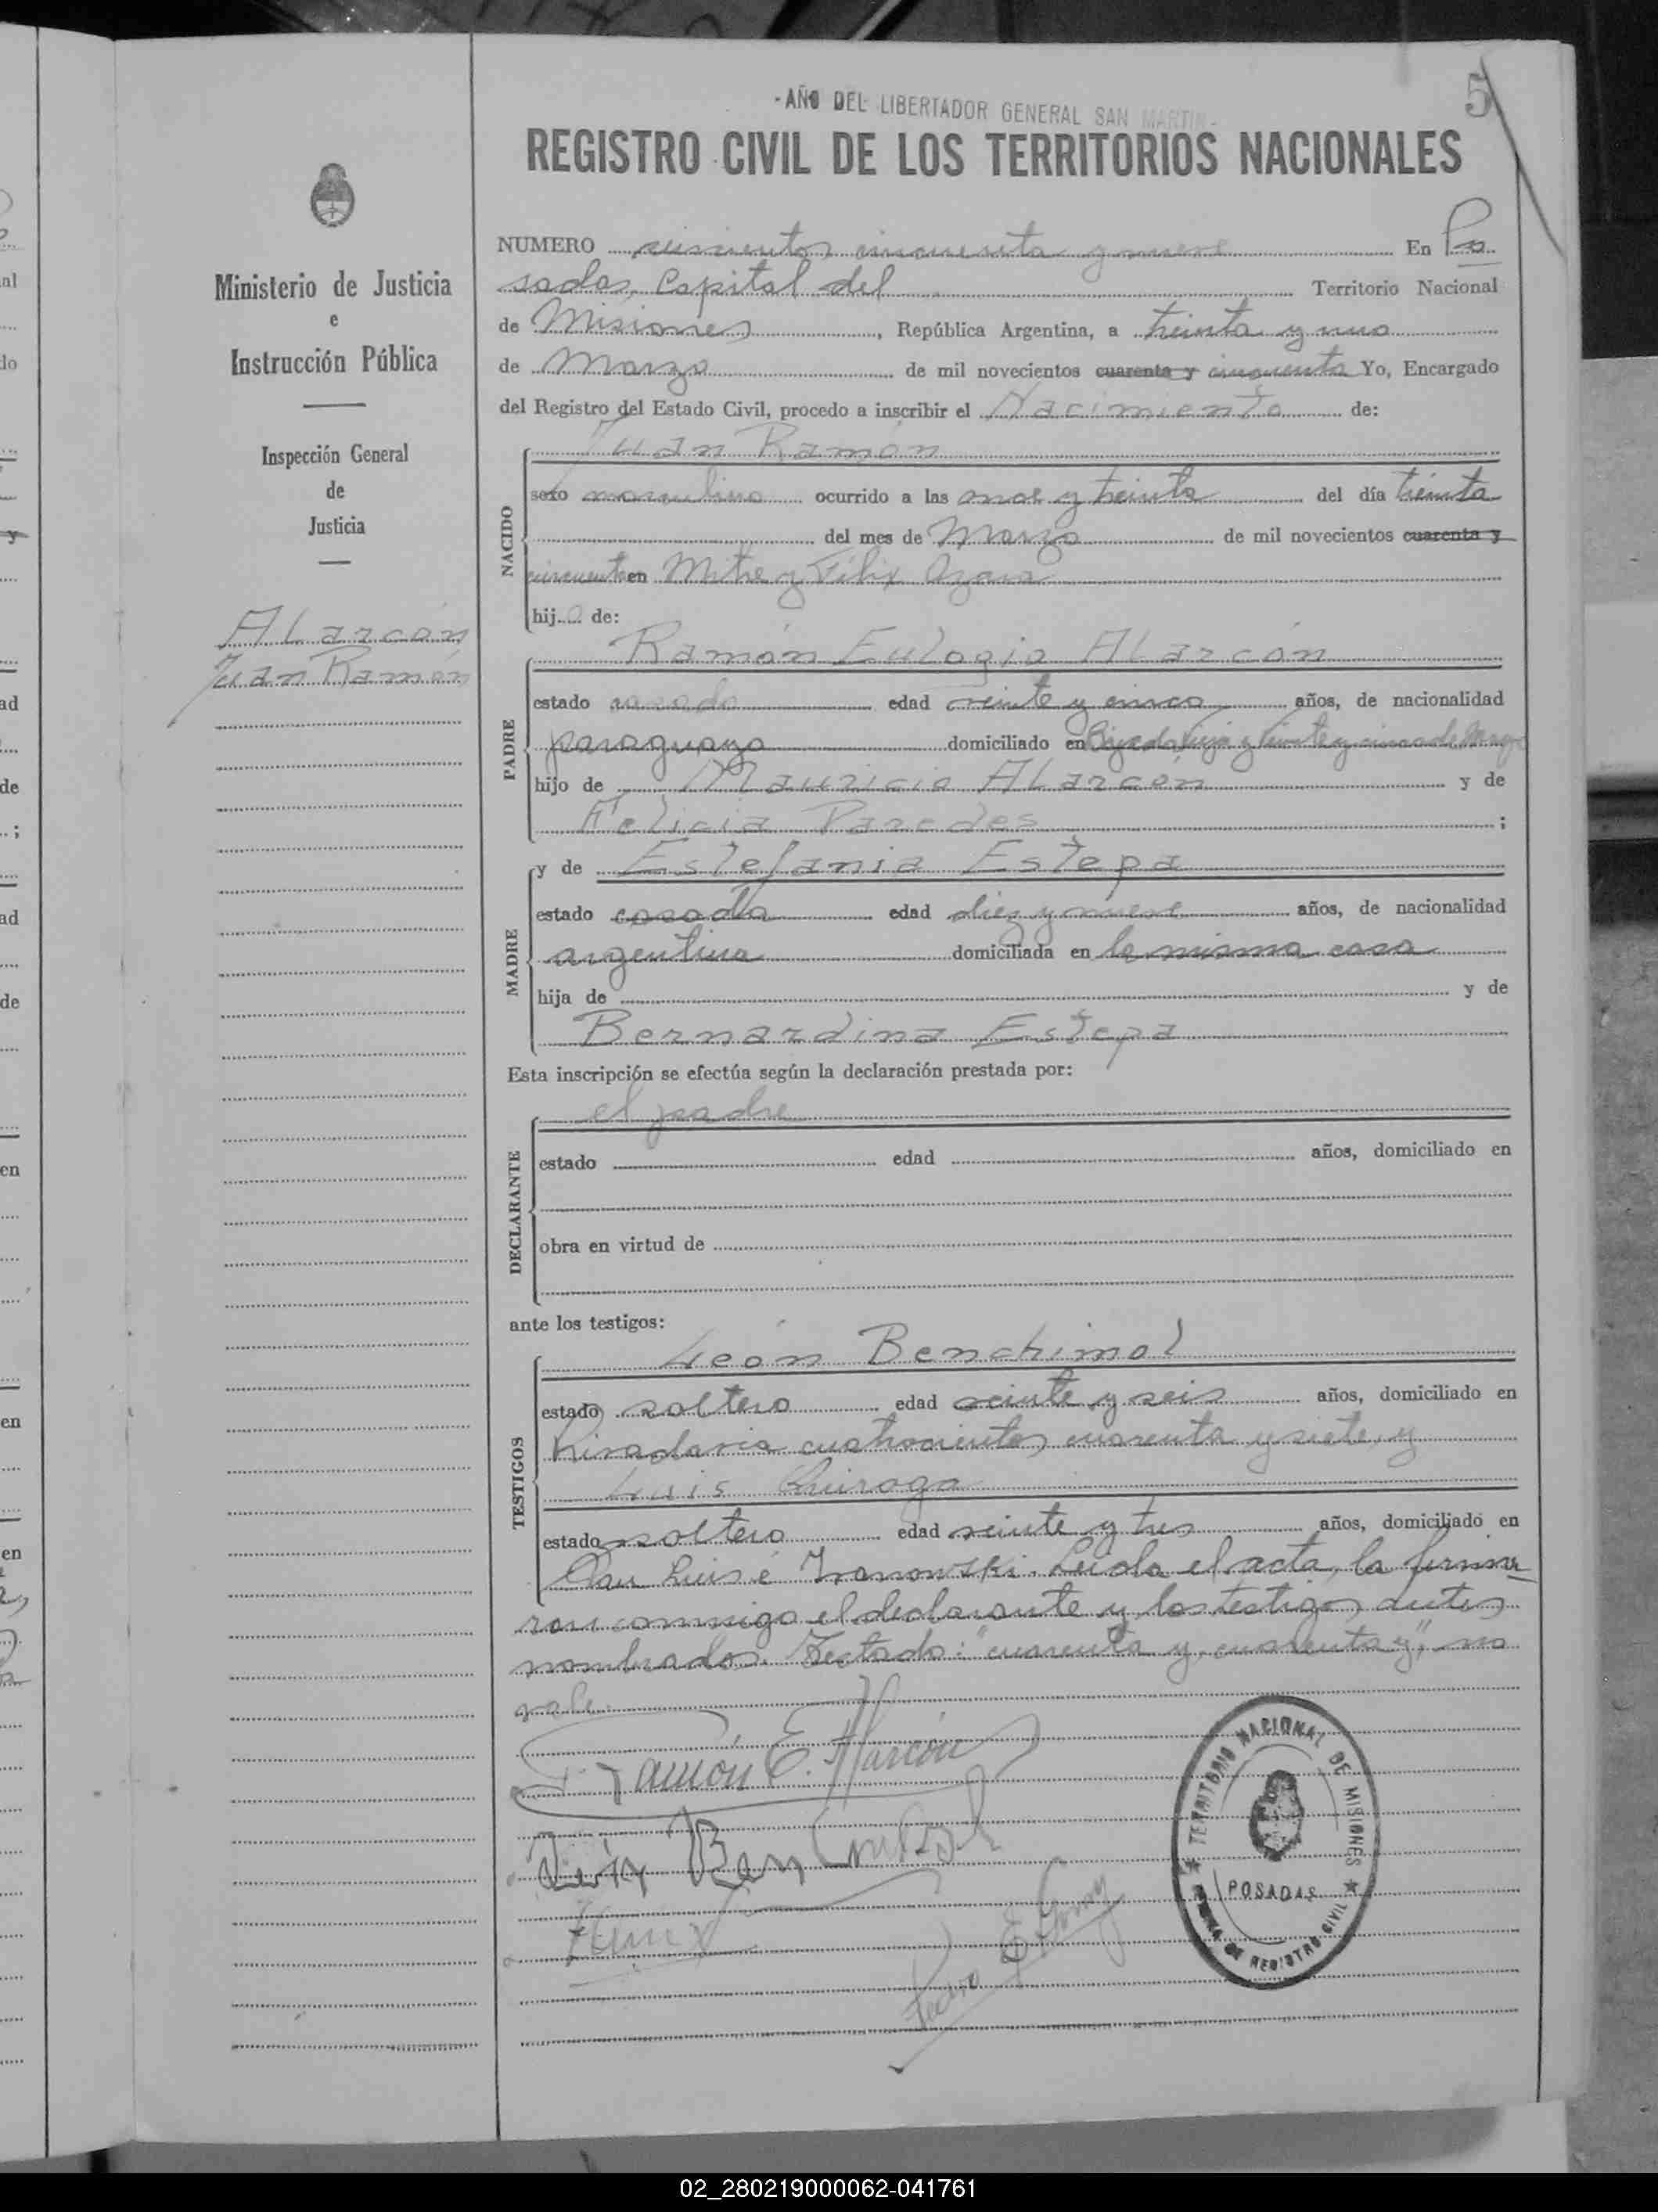 5
-AÑO DEL LIBERTADOR GENERAL SAN MARTIN-
REGISTRO CIVIL DE LOS TERRITORIOS NACIONALES
Ministerio de Justicia
e
Instrucción Pública
Inspección General
de
Justicia
Alarcón
Juan Ramón
NUMERO seiscientos cincuenta y nueve En Po
sadas, Capital del Territorio Nacional
de Misiones, República Argentina, a treinta y uno
de Marzo de mil novecientos cuarenta y cincuenta Yo, Encargado
del Registro del Estado Civil, procedo a inscribir el Nacimiento de:
NACIDO
Juan Ramón
sexo masculino ocurrido a las once y treinta del día treinta
del mes de Marzo de mil novecientos cuarenta y
cincuenta en Mitre y Félix Azara
hijo de:
PADRE
Ramón Eulogio Alarcón
estado casado edad veinte y cinco años, de nacionalidad
paraguaya domiciliado en y veinte y cinco de Mayo
hijo de Mauricio Alarcón y de
Felicia Paredes ;
MADRE
y de Estefania Estepa
estado casada edad diez y nueve años, de nacionalidad
argentina domiciliada en la misma casa
hija de y de
Bernardina Estepa
Esta inscripción se efectúa según la declaración prestada por:
DECLARANTE
el padre
estado edad años, domiciliado en
obra en virtud de
ante los testigos:
TESTIGOS
León Benchimol
estado soltero edad veinte y seis años, domiciliado en
Rivadavia cuatrocientos cuarenta y siete, y
Luis Quiroga
estado soltero edad veinte y tres años, domiciliado en
San Luis é Iranowski. Leída el acta, la firma
ron conmigo el declarante y los testigos antes
nombrados. Testado: "cuarenta y, cuarenta y", no
vale.
Ramón E. Alarcón
León Benchimol
Pedro E. Gomez
TERRITORIO NACIONAL DE MISIONES
POSADAS
OFICINA DE REGISTRO CIVIL
02_280219000062-041761